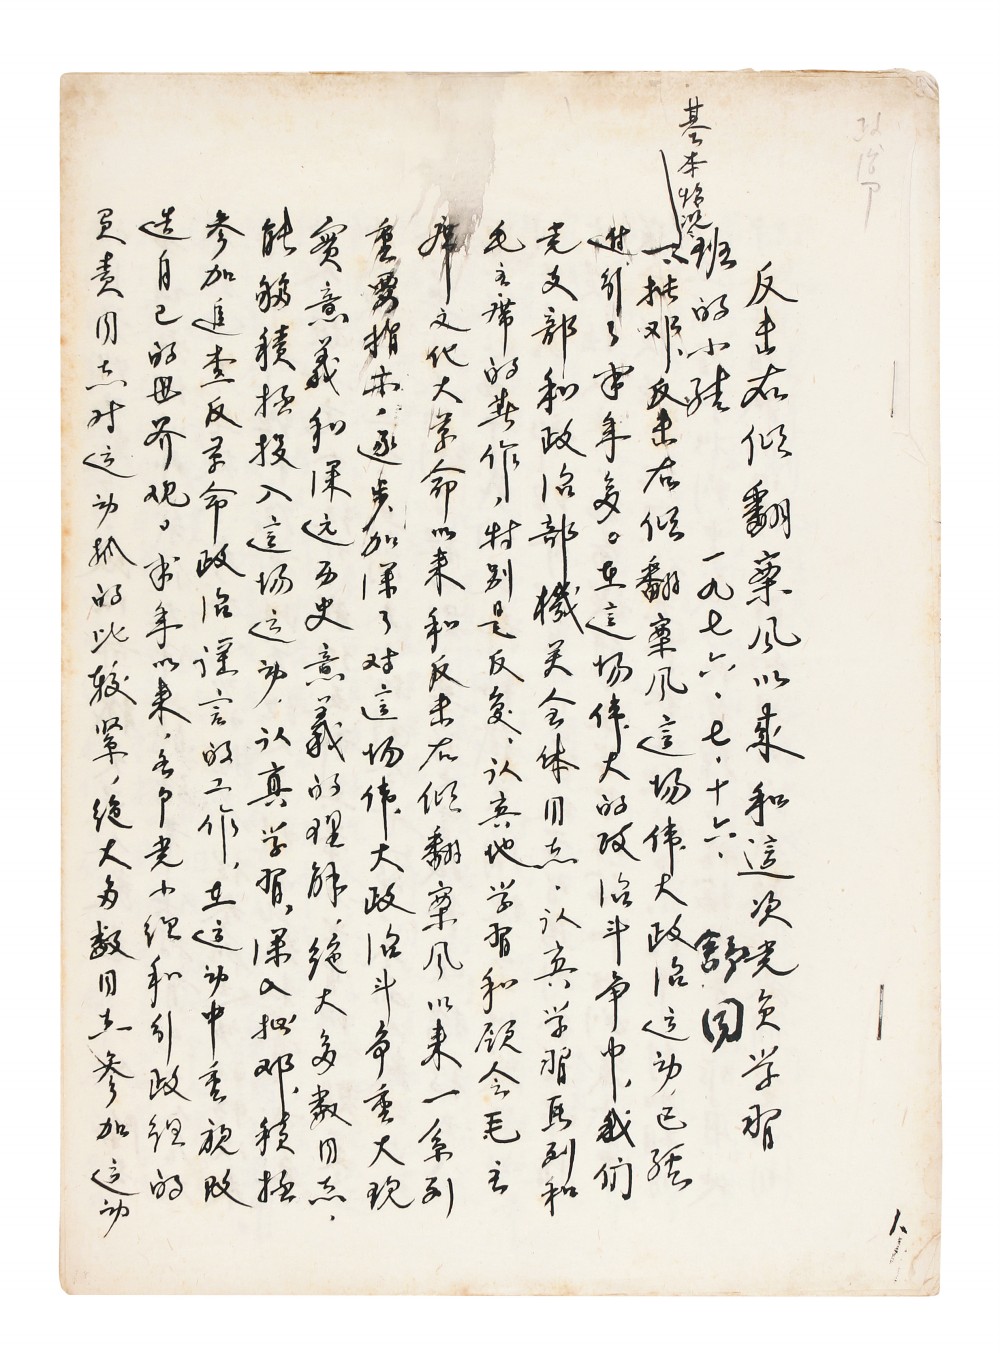 反击右倾翻案风以来和这次党员学习
班的小结
一九七六、七、十六、
舒同
基本情况
一、批邓、反击右倾翻案风这场伟大政治运动，已经
进行了半年多。在这场伟大的政治斗争中，我们
党支部和政治部机关全体同志，认真学习马列和
毛主席的著作，特别是反复、认真地学习和领会毛主
席文化大革命以来和反击右倾翻案风以来一系列
重要指示，逐步加深了对这场伟大政治斗争重大现
实意义和深远历史意义的理解，绝大多数同志，
能够积极投入这场运动，认真学习，深入批邓，积极
参加追查反革命政治谣言的工作，在运动中重视改
造自己的世界观。半年以来，各个党小组和行政组的
负责同志对运动抓的比较紧，绝大多数同志参加运动